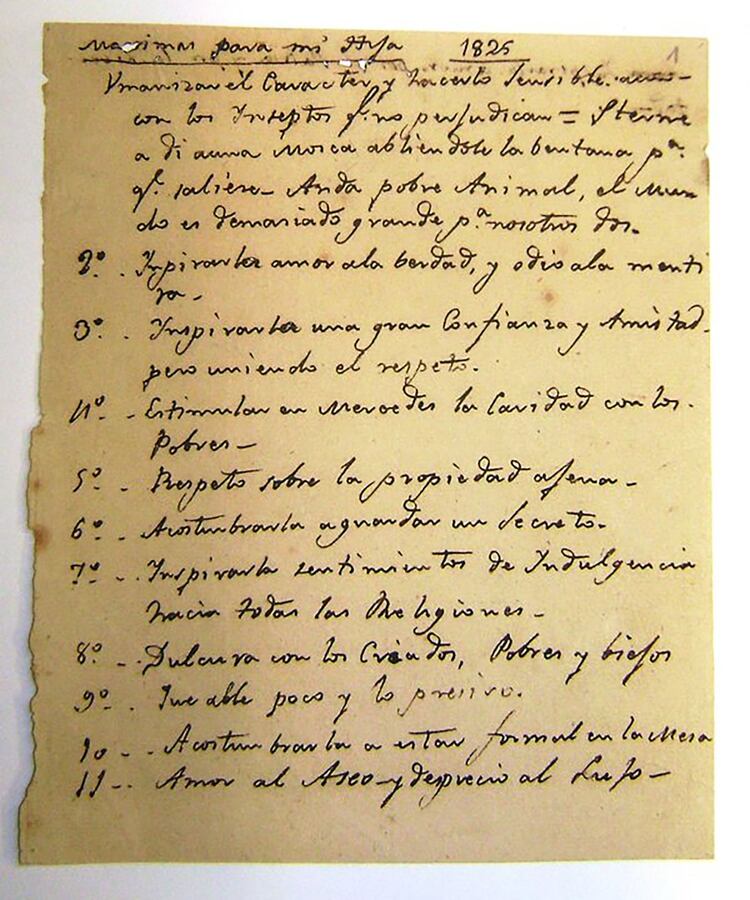 Maximas para mi Hija 1825
1
Vmanizar el Caracter y hacerlo sensible aun
con los Inseptos q.e no perjudican = Sterne
a di auna Mosca abliendole la bentana p.a
q.e saliese – Anda pobre Animal, el Mun
do es demasiado grande p.a nosotros dos.
2º . Inpirarla amor ala berdad, y odio ala menti
ra –
3º . Inspirarla una gran Confianza y Amistad
pero uniendo el respeto.
4º . Estimular en Mercedes la Caridad con los
Pobres –
5º . Respeto sobre la propiedad ajena –
6º . Acostumbrarla aguardar un Secreto.
7º . Inspirarla sentimientos de Indulgencia
hacia todas las Religiones –
8º . Dulcura con los Criados, Pobres y biejos
9º . Que able poco y lo presiso.
10 . Acostumbrarla a estar formal en la Mesa
11 . Amor al Aseo y desprecio al Lujo –